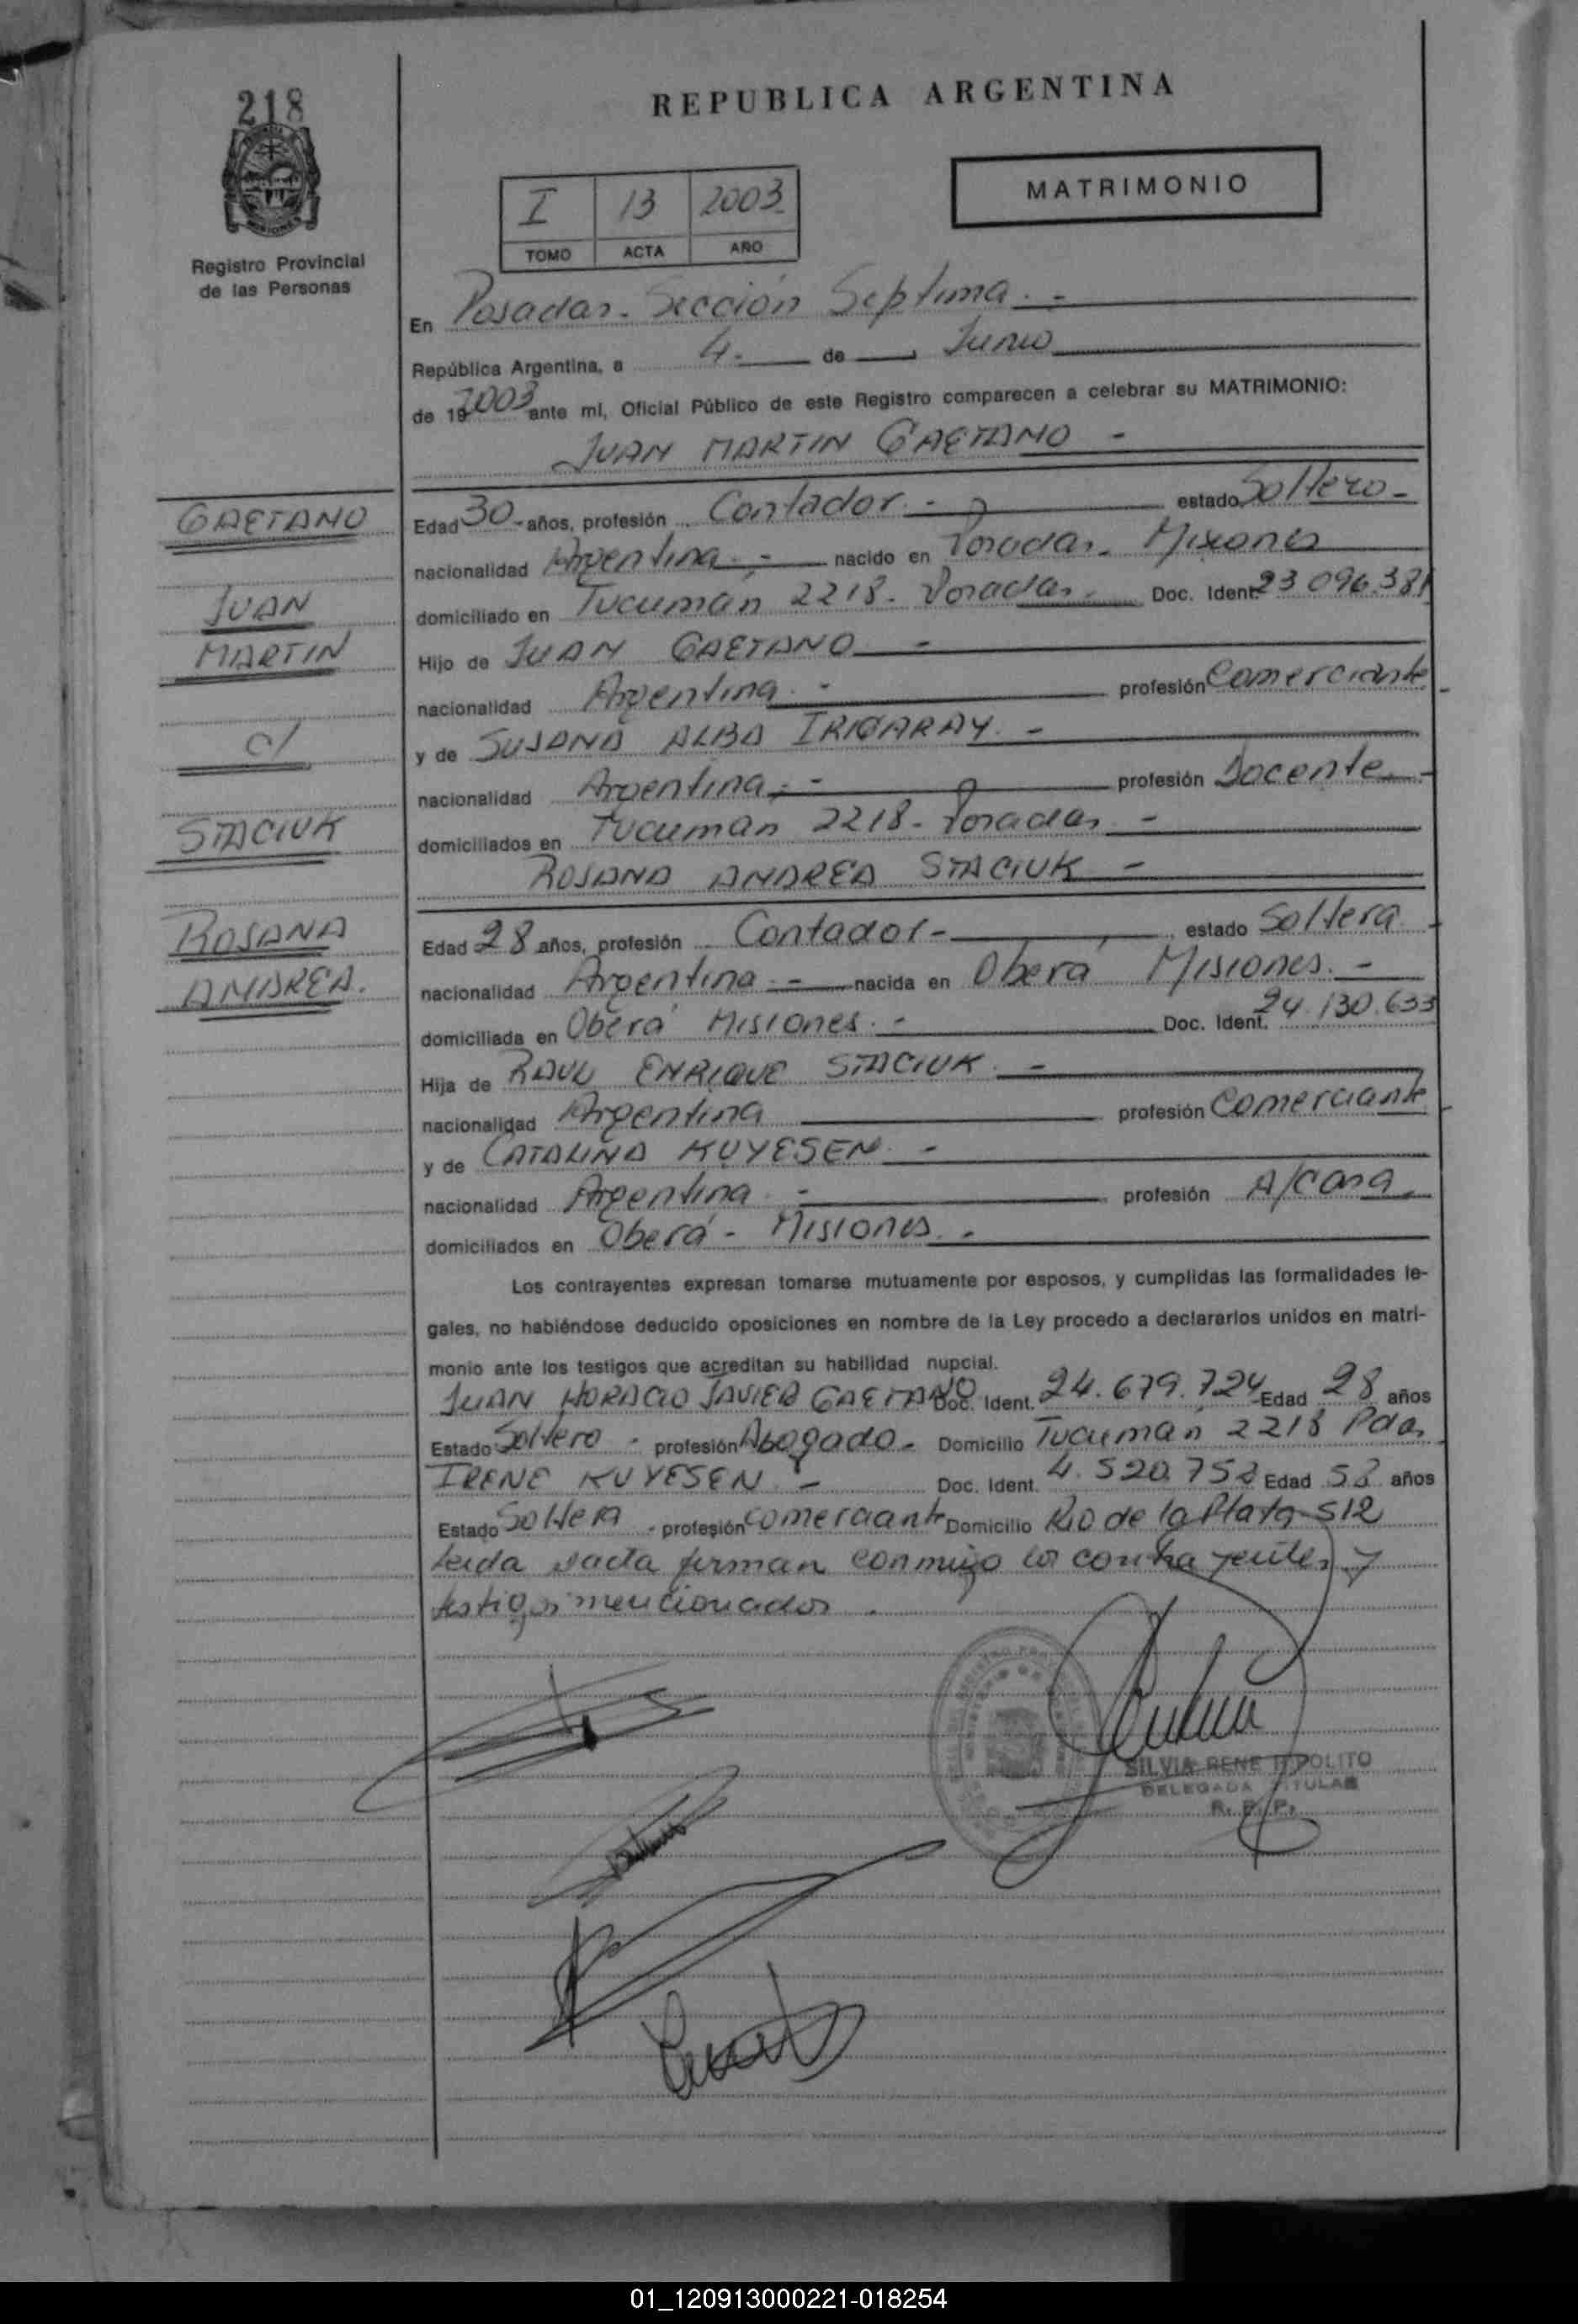 218
REPUBLICA ARGENTINA
MATRIMONIO
I 13 2003
TOMO ACTA AÑO
Registro Provincial
de las Personas
En Posadas - Sección Septima. -
República Argentina, a 4. de Junio
de 192003 ante mí, Oficial Público de este Registro comparecen a celebrar su MATRIMONIO:
JUAN MARTIN GAETANO -
GAETANO
Edad 30 - años, profesión Contador. - estado Soltero -
nacionalidad Argentina. - nacido en Posadas. Misiones
JUAN
domiciliado en Tucumán 2218 - Posadas. Doc. Ident. 23 096.381
MARTIN
Hijo de JUAN GAETANO -
nacionalidad Argentina. - profesión Comerciante -
c/
y de SUSANA ALBA IRIGARAY. -
nacionalidad Argentina, - profesión Docente -
STACIUK
domiciliados en Tucumán 2218 - Posadas -
ROSANA ANDREA STACIUK -
ROSANA
Edad 28 años, profesión Contador - estado Soltera -
ANDREA.
nacionalidad Argentina. - nacida en Oberá Misiones. -
domiciliada en Oberá Misiones. - Doc. Ident. 24.130.633
Hija de RAUL ENRIQUE STACIUK. -
nacionalidad Argentina profesión Comerciante -
y de CATALINA KUYESEN. -
nacionalidad Argentina - profesión A/casa
domiciliados en Oberá - Misiones. -
Los contrayentes expresan tomarse mutuamente por esposos, y cumplidas las formalidades le-
gales, no habiéndose deducido oposiciones en nombre de la Ley procedo a declararlos unidos en matri-
monio ante los testigos que acreditan su habilidad nupcial.
JUAN HORACIO JAVIER GAETANO Doc. Ident. 24.679.724 Edad 28 años
Estado Soltero - profesión Abogado - Domicilio Tucumán 2218 Pdas
IRENE KUYESEN. - Doc. Ident. 4.520.752 Edad 58 años
Estado Soltera - profesión comerciante Domicilio Rio de la Plata 512
Leida el acta firman conmigo los contrayentes y
testigos mencionados.
SILVIA RENE HIPOLITO
DELEGADA TITULAR
R. P. P.
01_120913000221-018254